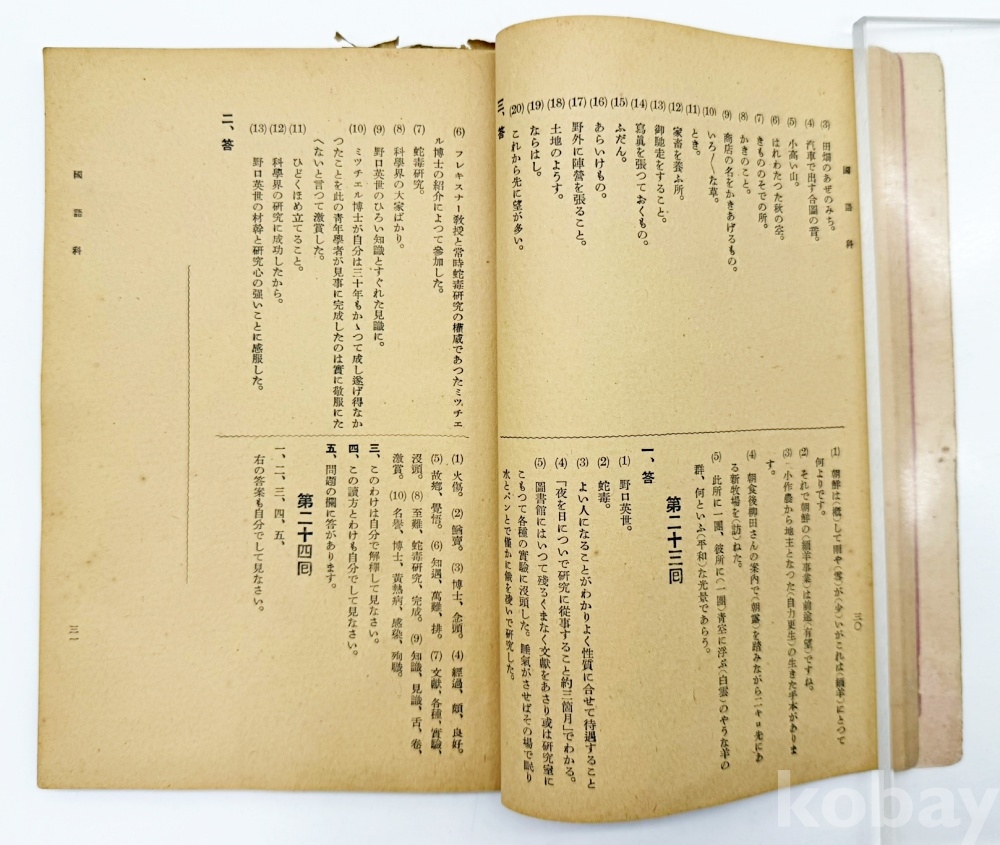 國語科
三〇
(3) 田畑のあぜのみち。
(4) 汽車で出す合圖の音。
(5) 小高い山。
(6) はれわたつた秋の空。
(7) きもののそでの所。
(8) かきのこと。
(9) 商店の名をかきあげるもの。
(10) いろ〳〵な草。
(11) とき。
(12) 家畜を養ふ所。
(13) 御馳走をすること。
(14) 寫眞を張つておくもの。
(15) ふだん。
(16) あらいけもの。
(17) 野外に陣營を張ること。
(18) 土地のようす。
(19) ならはし。
(20) これから先に望が多い。
三、答
(1) 朝鮮は(概)して雨や(雪)が(少)いがこれは(緬羊)にとつて
何よりです。
(2) それで朝鮮の(緬羊事業)は前途(有望)ですね。
(3) 小作農から地主となつた(自力更生)の生きた手本がありま
す。
(4) 朝食後柳田さんの案内で(朝露)を踏みながら二キロ先にあ
る新牧場を(訪)ねた。
(5) 此所に一團、彼所に(一團)青空に浮ぶ(白雲)のやうな羊の
群、何といふ(平和)な光景であらう。
第二十三囘
一、答
(1) 野口英世。
(2) 蛇毒。
(3) よい人になることがわかりよく性質に合せて待遇すること
(4) 「夜を日についで研究に從事すること約三箇月」でわかる。
(5) 圖書館にはいつて殘るくまなく文獻をあさり或は研究室に
こもつて各種の實驗に沒頭した。睡氣がさせばその場で眠り
水とパンとで僅かに飢を凌いで研究した。
(6) フレキスナー敎授と常時蛇毒研究の權威であつたミツチエ
ル博士の紹介によつて參加した。
(7) 蛇毒研究。
(8) 科學界の大家ばかり。
(9) 野口英世のひろい知識とすぐれた見識に。
(10) ミツチエル博士が自分は三十年もかゝつて成し遂げ得なか
つたことを此の靑年學者が見事に完成したのは實に敬服にた
へないと言つて激賞した。
(11) ひどくほめ立てること。
(12) 科學界の研究に成功したから。
(13) 野口英世の材幹と研究心の强いことに感服した。
二、答
(1) 火傷。 (2) 餉賣。 (3) 博士、念頭。 (4) 經過、頗、良好。
(5) 故鄕、覺悟。 (6) 知遇、萬難、排。 (7) 文獻、各種、實驗、
沒頭。 (8) 至難、蛇毒研究、完成。 (9) 知識、見識、舌、卷、
激賞。 (10) 名譽、博士、黃熱病、感染、殉職。
三、このわけは自分で解釋して見なさい。
四、この讀方とわけも自分でして見なさい。
五、問題の欄に答があります。
第二十四囘
一、二、三、四、五、
右の答案も自分でして見なさい。
國語科
三一
kobay